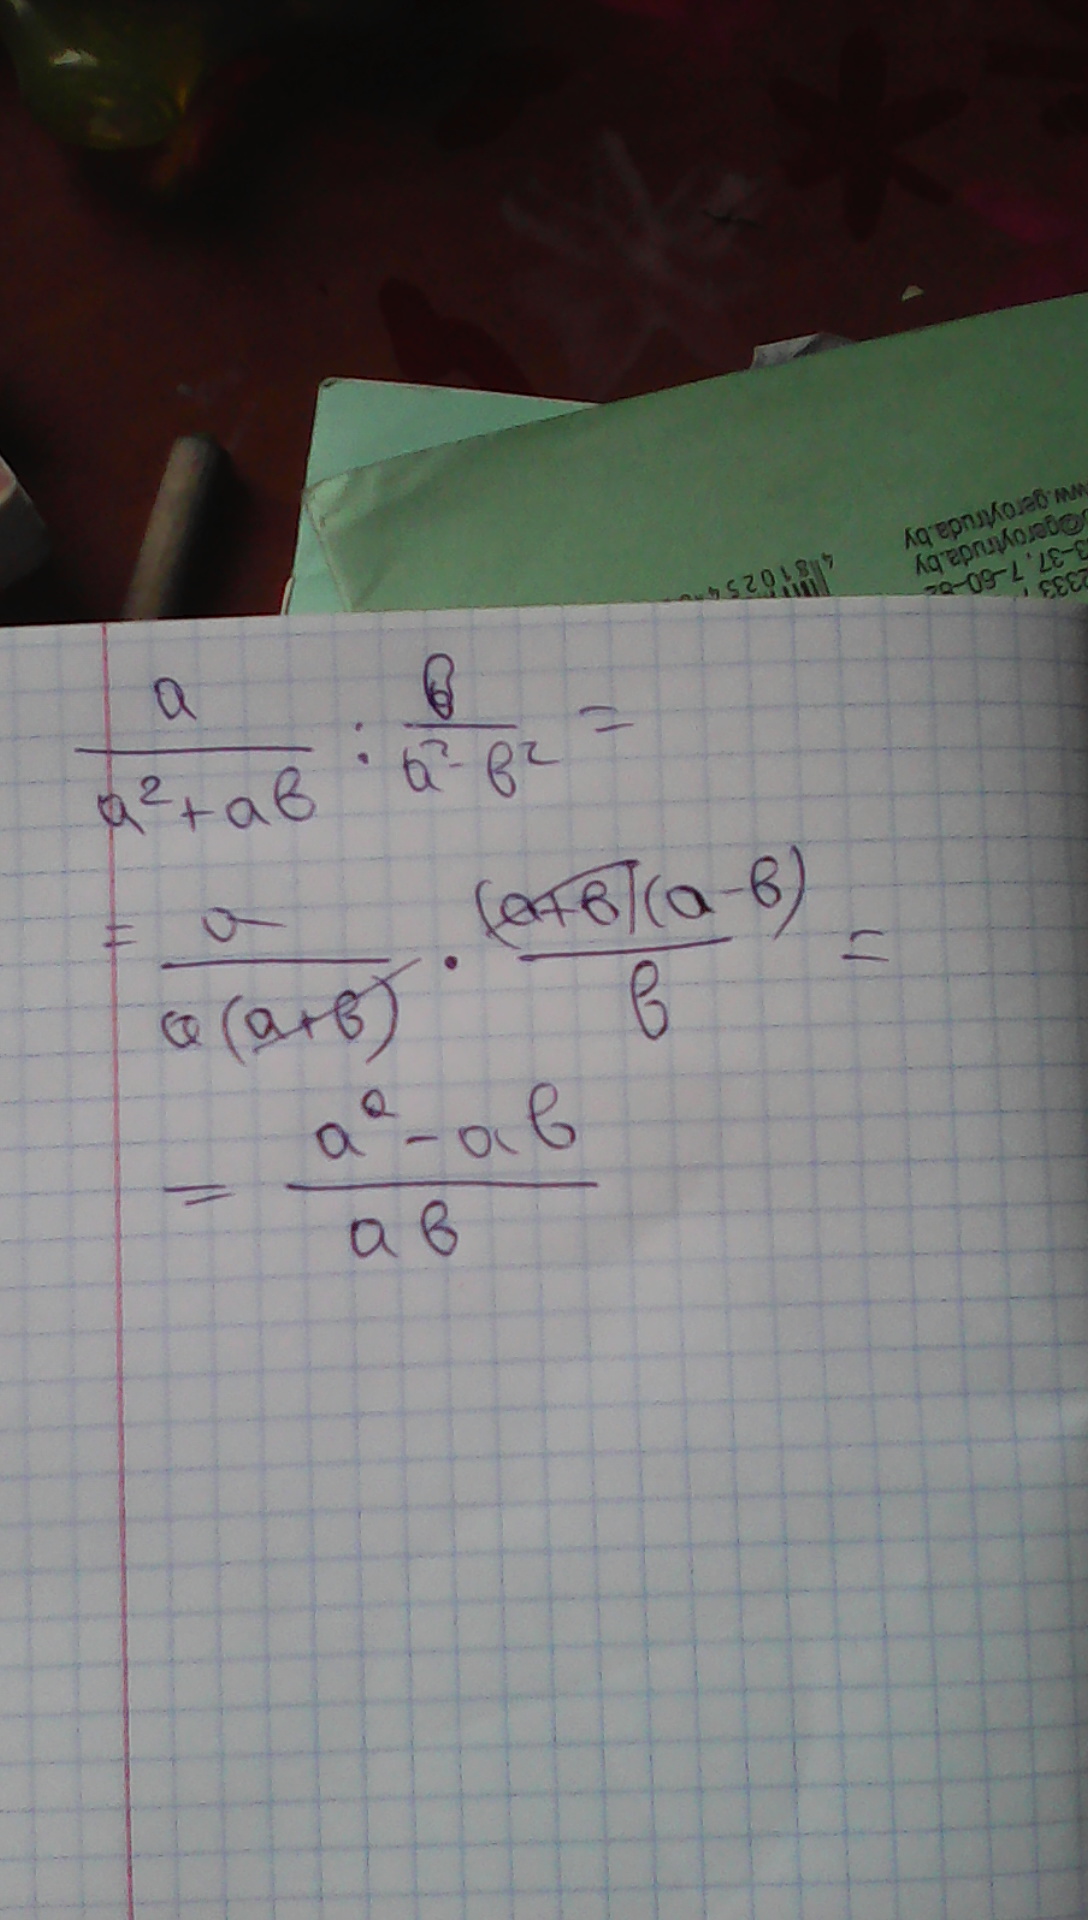 www.geroytruda.by
@geroytruda.by
3-37, 7-60-62
2333
4 810254
a/(a²+aв) : в/(a²-в²) =
= a/(a(a+в)) · (a+в)(a-в)/в =
= (a²-aв)/(aв)